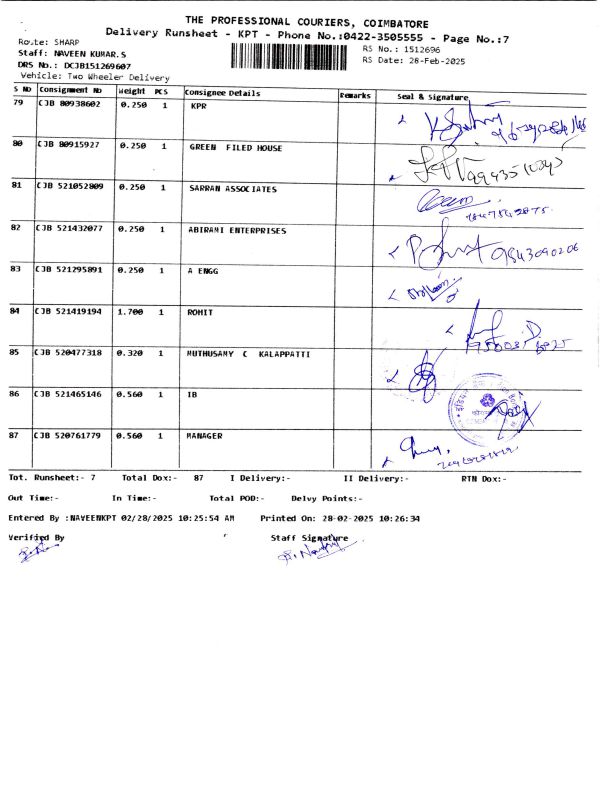 THE PROFESSIONAL COURIERS, COIMBATORE
Delivery Runsheet - KPT - Phone No.:0422-3505555 - Page No.:7
Route: SHARP
RS No.: 1512696
Staff: NAVEEN KUMAR.S
RS Date: 28-Feb-2025
DRS No.: DCJB151269607
Vehicle: Two Wheeler Delivery
S No Consignment No Weight PCS Consignee Details Remarks Seal & Signature
79 CJB 80938602 0.250 1 KPR
80 CJB 80915927 0.250 1 GREEN FILED HOUSE
81 CJB 521052809 0.250 1 SARRAN ASSOCIATES
82 CJB 521432077 0.250 1 ABIRAMI ENTERPRISES 9843090206
83 CJB 521295891 0.250 1 A ENGG
84 CJB 521419194 1.700 1 ROHIT
85 CJB 520477318 0.320 1 MUTHUSAMY C KALAPPATTI
86 CJB 521465146 0.560 1 IB
87 CJB 520761779 0.560 1 MANAGER
Tot. Runsheet:- 7 Total Dox:- 87 I Delivery:- II Delivery:- RTN Dox:-
Out Time:- In Time:- Total POD:- Delvy Points:-
Entered By :NAVEENKPT 02/28/2025 10:25:54 AM Printed On: 28-02-2025 10:26:34
Verified By Staff Signature